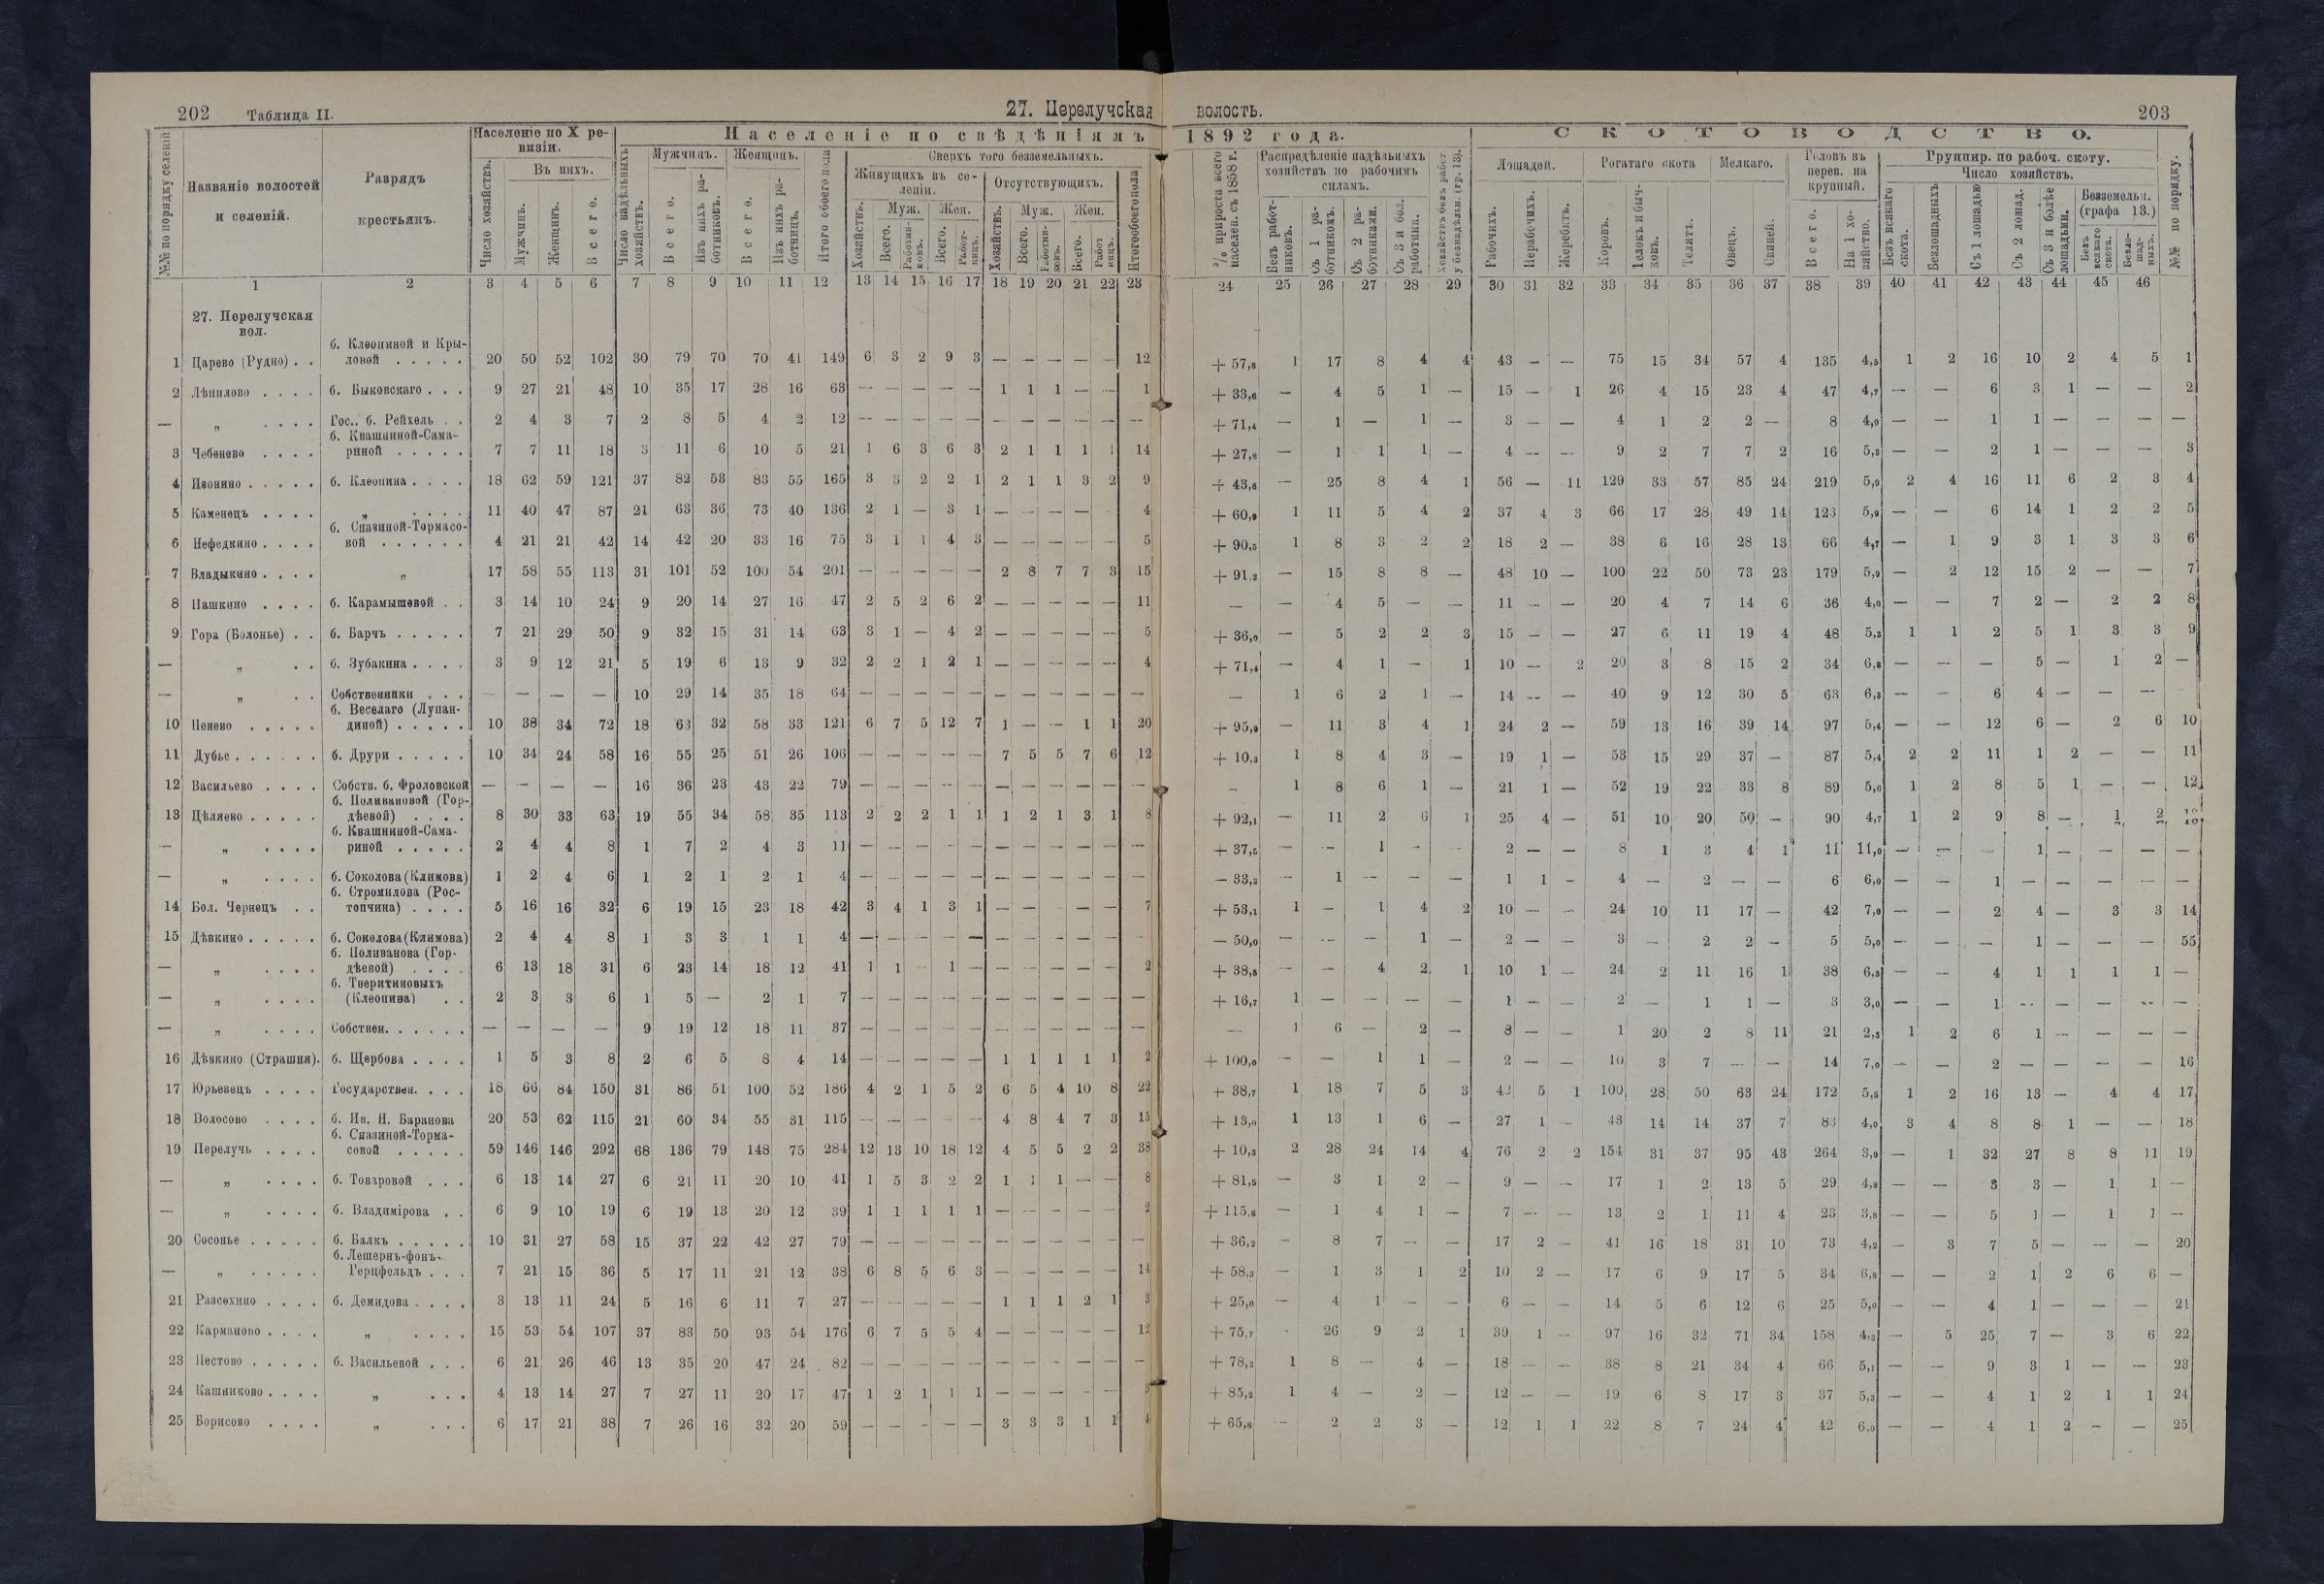 202 Таблица II. 27. Перелучская волость. 203
№№ по порядку селеній
Названіе волостей и селеній.
Разрядъ крестьянъ.
Населеніе по X ревизіи.
Число хозяйствъ.
Въ нихъ.
Мужчинъ.
Женщинъ.
Всего.
Населеніе по свѣдѣніямъ 1892 года.
Число надѣльныхъ хозяйствъ.
Мужчинъ.
Всего.
Изъ нихъ работниковъ.
Женщинъ.
Всего.
Изъ нихъ работницъ.
Итого обоего пола
Сверхъ того безземельныхъ.
Живущихъ въ селеніи.
Хозяйствъ.
Муж.
Всего.
Работниковъ.
Жен.
Всего.
Работницъ.
Отсутствующихъ.
Хозяйствъ.
Муж.
Всего.
Работниковъ.
Жен.
Всего.
Работницъ.
Итого обоего пола
% прироста всего населен. съ 1858 г.
Распредѣленіе надѣльныхъ хозяйствъ по рабочимъ силамъ.
Безъ работниковъ.
Съ 1 работникомъ.
Съ 2 работниками.
Съ 3 и бол. работник.
Хозяйствъ безъ работ. у безнадѣльн. (гр. 13).
СКОТОВОДСТВО.
Лошадей.
Рабочихъ.
Нерабочихъ.
Жеребятъ.
Рогатаго скота
Коровъ.
Телокъ и бычковъ.
Телятъ.
Мелкаго.
Овецъ.
Свиней.
Головъ въ перев. на крупный.
Всего.
На 1 хозяйство.
Группир. по рабоч. скоту.
Число хозяйствъ.
Безъ всякаго скота.
Безлошадныхъ
Съ 1 лошадью
Съ 2 лошад.
Съ 3 и болѣе лошадьми.
Безземельн. (графа 13.)
Безъ всякаго скота.
Безлошадныхъ.
№№ по порядку.
1 2 3 4 5 6 7 8 9 10 11 12 13 14 15 16 17 18 19 20 21 22 23 24 25 26 27 28 29 30 31 32 33 34 35 36 37 38 39 40 41 42 43 44 45 46
27. Перелучская вол.
1 Царево (Рудно) . . б. Клеопиной и Крыловой . . . . . 20 50 52 102 30 79 70 70 41 149 6 3 2 9 3 — — — — — 12 + 57,8 1 17 8 4 4 43 — — 75 15 34 57 4 135 4,5 1 2 16 10 2 4 5 1
2 Лѣпилово . . . . б. Быковскаго . . . 9 27 21 48 10 35 17 28 16 63 — — — — — 1 1 1 — — 1 + 33,6 — 4 5 1 — 15 — 1 26 4 15 23 4 47 4,7 — — 6 3 1 — — 2
— „ . . . . Гос., б. Рейхель . . 2 4 3 7 2 8 5 4 2 12 — — — — — — — — — — — + 71,4 — 1 — 1 — 3 — — 4 1 2 2 — 8 4,0 — — 1 1 — — — —
3 Чебенево . . . . б. Квашниной-Самариной . . . . . 7 7 11 18 3 11 6 10 5 21 1 6 3 6 3 2 1 1 1 1 14 + 27,8 — 1 1 1 — 4 — — 9 2 7 7 2 16 5,3 — — 2 1 — — — 3
4 Ивонино . . . . . б. Клеопина . . . . 18 62 59 121 37 82 53 83 55 165 3 3 2 2 1 2 1 1 3 2 9 + 43,6 — 25 8 4 1 56 — 11 129 33 57 85 24 219 5,9 2 4 16 11 6 2 3 4
5 Каменецъ . . . . „ . . . . 11 40 47 87 21 63 36 73 40 136 2 1 — 3 1 — — — — — 4 + 60,9 1 11 5 4 2 37 4 3 66 17 28 49 14 123 5,9 — — 6 14 1 2 2 5
6 Нефедкино . . . . б. Спазиной-Тормасовой . . . . . . 4 21 21 42 14 42 20 33 16 75 3 1 1 4 3 — — — — — 5 + 90,5 1 8 3 2 2 18 2 — 38 6 16 28 13 66 4,7 — 1 9 3 1 3 3 6
7 Владыкино . . . . „ 17 58 55 113 31 101 52 100 54 201 — — — — — 2 8 7 7 3 15 + 91,2 — 15 8 8 — 48 10 — 100 22 50 73 23 179 5,9 — 2 12 15 2 — — 7
8 Пашкино . . . . б. Карамышевой . . 3 14 10 24 9 20 14 27 16 47 2 5 2 6 2 — — — — — 11 — — 4 5 — — 11 — — 20 4 7 14 6 36 4,0 — — 7 2 — 2 2 8
9 Гора (Болонье) . . б. Барчъ . . . . . 7 21 29 50 9 32 15 31 14 63 3 1 — 4 2 — — — — — 5 + 36,0 — 5 2 2 3 15 — — 27 6 11 19 4 48 5,3 1 1 2 5 1 3 3 9
— „ . . б. Зубакина . . . . 3 9 12 21 5 19 6 13 9 32 2 2 1 2 1 — — — — — 4 + 71,4 — 4 1 — 1 10 — 2 20 3 8 15 2 34 6,8 — — — 5 — 1 2 —
— „ . . Собственники . . . — — — — 10 29 14 35 18 64 — — — — — — — — — — — — 1 6 2 1 — 14 — — 40 9 12 30 5 63 6,3 — — 6 4 — — —
10 Пенево . . . . . б. Веселаго (Лупандиной) . . . . . 10 38 34 72 18 63 32 58 33 121 6 7 5 12 7 1 — — 1 1 20 + 95,9 — 11 3 4 1 24 2 — 59 13 16 39 14 97 5,4 — — 12 6 — 2 6 10
11 Дубье . . . . . . б. Друри . . . . . 10 34 24 58 16 55 25 51 26 106 — — — — — 7 5 5 7 6 12 + 10,3 1 8 4 3 — 19 1 — 53 15 29 37 — 87 5,4 2 2 11 1 2 — — 11
12 Васильево . . . . Собств. б. Фроловской — — — — 16 36 23 43 22 79 — — — — — — — — — — — — 1 8 6 1 — 21 1 — 52 19 22 33 8 89 5,6 1 2 8 5 1 — — 12
13 Цѣляево . . . . . б. Поливановой (Гордѣевой) . . . . 8 30 33 63 19 55 34 58 35 113 2 2 2 1 1 1 2 1 3 1 8 + 92,1 — 11 2 6 1 25 4 — 51 10 20 50 — 90 4,7 1 2 9 8 — 1 2 13
— „ . . . . б. Квашниной-Самариной . . . . . 2 4 4 8 1 7 2 4 3 11 — — — — — — — — — — — + 37,5 — — 1 - - 2 — — 8 1 3 4 1 11 11,0 — — — 1 — — — —
— „ . . . . б. Соколова (Климова) 1 2 4 6 1 2 1 2 1 4 — — — — — — — — — — — — 33,3 — 1 — — — 1 1 — 4 — 2 — — 6 6,0 — — 1 — — — — —
14 Бол. Чернецъ . . б. Стромилова (Ростопчина) . . . . 5 16 16 32 6 19 15 23 18 42 3 4 1 3 1 — — — — — 7 + 53,1 1 — 1 4 2 10 — — 24 10 11 17 — 42 7,0 — — 2 4 — 3 3 14
15 Дѣвкино . . . . . б. Соколова (Климова) 2 4 4 8 1 3 3 1 1 4 — — — — — — — — — — — — 50,0 — — — 1 — 2 — — 3 — 2 2 — 5 5,0 — — — 1 — — — 55
— „ . . . . б. Поливанова (Гордѣевой) . . . . 6 13 18 31 6 23 14 18 12 41 1 1 - 1 — — — — — — 2 + 38,8 — — 4 2 1 10 1 — 24 2 11 16 1 38 6,3 — — 4 1 1 1 1 —
— „ . . . . б. Тверитиновыхъ (Клеопина) . . 2 3 3 6 1 5 — 2 1 7 — — — — — — — — — — — + 16,7 1 — — — — 1 — — 2 — 1 1 — 3 3,0 — — 1 — — — — —
— „ . . . . Собствен. . . . . . — — — — 9 19 12 18 11 37 — — — — — — — — — — — — 1 6 — 2 — 8 — — 1 20 2 8 11 21 2,3 1 2 6 1 — — — —
16 Дѣвкино (Страшня). б. Щербова . . . . 1 5 3 8 2 6 5 8 4 14 — — — — — 1 1 1 1 1 2 + 100,0 — — 1 1 — 2 — — 10 3 7 — — 14 7,0 — — 2 — — — — 16
17 Юрьевецъ . . . . Государствен. . . . 18 66 84 150 31 86 51 100 52 186 4 2 1 5 2 6 5 4 10 8 22 + 38,7 1 18 7 5 3 42 5 1 100 28 50 63 24 172 5,5 1 2 16 13 — 4 4 17
18 Волосово . . . . б. Ив. Н. Баранова 20 53 62 115 21 60 34 55 31 115 — — — — — 4 8 4 7 3 15 + 13,0 1 13 1 6 — 27 1 — 43 14 14 37 7 83 4,0 3 4 8 8 1 — — 18
19 Перелучь . . . . б. Спазиной-Тормасовой . . . . . 59 146 146 292 68 136 79 148 75 284 12 13 10 18 12 4 5 5 2 2 38 + 10,3 2 28 24 14 4 76 2 2 154 31 37 95 43 264 3,9 — 1 32 27 8 8 11 19
— „ . . . . б. Товаровой . . . 6 13 14 27 6 21 11 20 10 41 1 5 3 2 2 1 1 1 — — 8 + 81,5 — 3 1 2 — 9 — — 17 1 2 13 5 29 4,8 — — 3 3 — 1 1 —
— „ . . . . б. Владимірова . . 6 9 10 19 6 19 13 20 12 39 1 1 1 1 1 — — — — — 2 + 115,8 — 1 4 1 — 7 — — 13 2 1 11 4 23 3,8 — — 5 1 — 1 1 —
20 Сосонье . . . . . б. Балкъ . . . . . 10 31 27 58 15 37 22 42 27 79 — — — — — — — — — — — + 36,2 — 8 7 — — 17 2 — 41 16 18 31 10 73 4,2 — 3 7 5 — — — 20
— „ . . . . . б. Лешернъ-фонъ-Герцфельдъ . . . 7 21 15 36 5 17 11 21 12 38 6 8 5 6 3 — — — — — 14 + 58,3 — 1 3 1 2 10 2 — 17 6 9 17 5 34 6,8 — — 2 1 2 6 6 —
21 Разсохино . . . . б. Демидова . . . . 3 13 11 24 5 16 6 11 7 27 — — — — — 1 1 1 2 1 3 + 25,0 — 4 1 — — 6 — — 14 5 6 12 6 25 5,0 — — 4 1 — — — 21
22 Карманово . . . . „ . . . . 15 53 54 107 37 83 50 93 54 176 6 7 5 5 4 — — — — — 12 + 75,7 - 26 9 2 1 39 1 — 97 16 32 71 34 158 4,3 — 5 25 7 — 3 6 22
23 Пестово . . . . . б. Васильевой . . . 6 21 26 46 13 35 20 47 24 82 — — — — — — — — — — — + 78,3 1 8 — 4 — 18 — — 38 8 21 34 4 66 5,1 — — 9 3 1 — — 23
24 Кашниково . . . . „ . . . 4 13 14 27 7 27 11 20 17 47 1 2 1 1 1 — — — — — 3 + 85,2 1 4 — 2 — 12 — — 19 6 8 17 3 37 5,3 — — 4 1 2 1 1 24
25 Борисово . . . . „ . . . 6 17 21 38 7 26 16 32 20 59 — — — — — 3 3 3 1 1 4 + 65,8 — 2 2 3 — 12 1 1 22 8 7 24 4 42 6,0 — — 4 1 2 — — 25